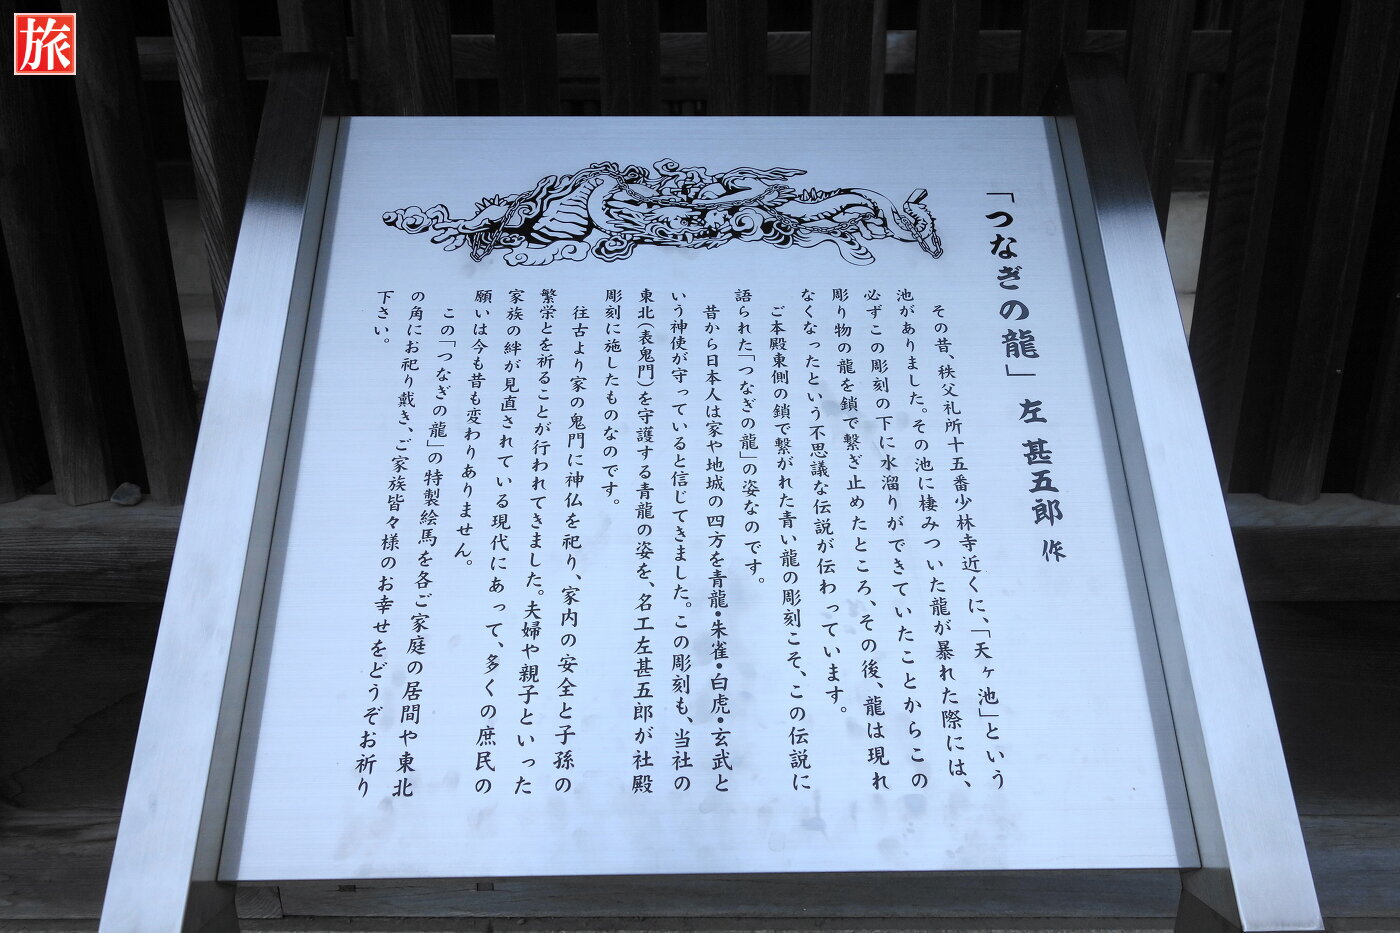 旅
「つなぎの龍」 左 甚五郎 作
その昔、秩父札所十五番少林寺近くに、「天ヶ池」という
池がありました。その池に棲みついた龍が暴れた際には、
必ずこの彫刻の下に水溜りができていたことからこの
彫り物の龍を鎖で繋ぎ止めたところ、その後、龍は現れ
なくなったという不思議な伝説が伝わっています。
ご本殿東側の鎖で繋がれた青い龍の彫刻こそ、この伝説に
語られた「つなぎの龍」の姿なのです。
昔から日本人は家や地域の四方を青龍・朱雀・白虎・玄武と
いう神使が守っていると信じてきました。この彫刻も、当社の
東北(表鬼門)を守護する青龍の姿を、名工左甚五郎が社殿
彫刻に施したものなのです。
往古より家の鬼門に神仏を祀り、家内の安全と子孫の
繁栄とを祈ることが行われてきました。夫婦や親子といった
家族の絆が見直されている現代にあって、多くの庶民の
願いは今も昔も変わりありません。
この「つなぎの龍」の特製絵馬を各ご家庭の居間や東北
の角にお祀り戴き、ご家族皆々様のお幸せをどうぞお祈り
下さい。